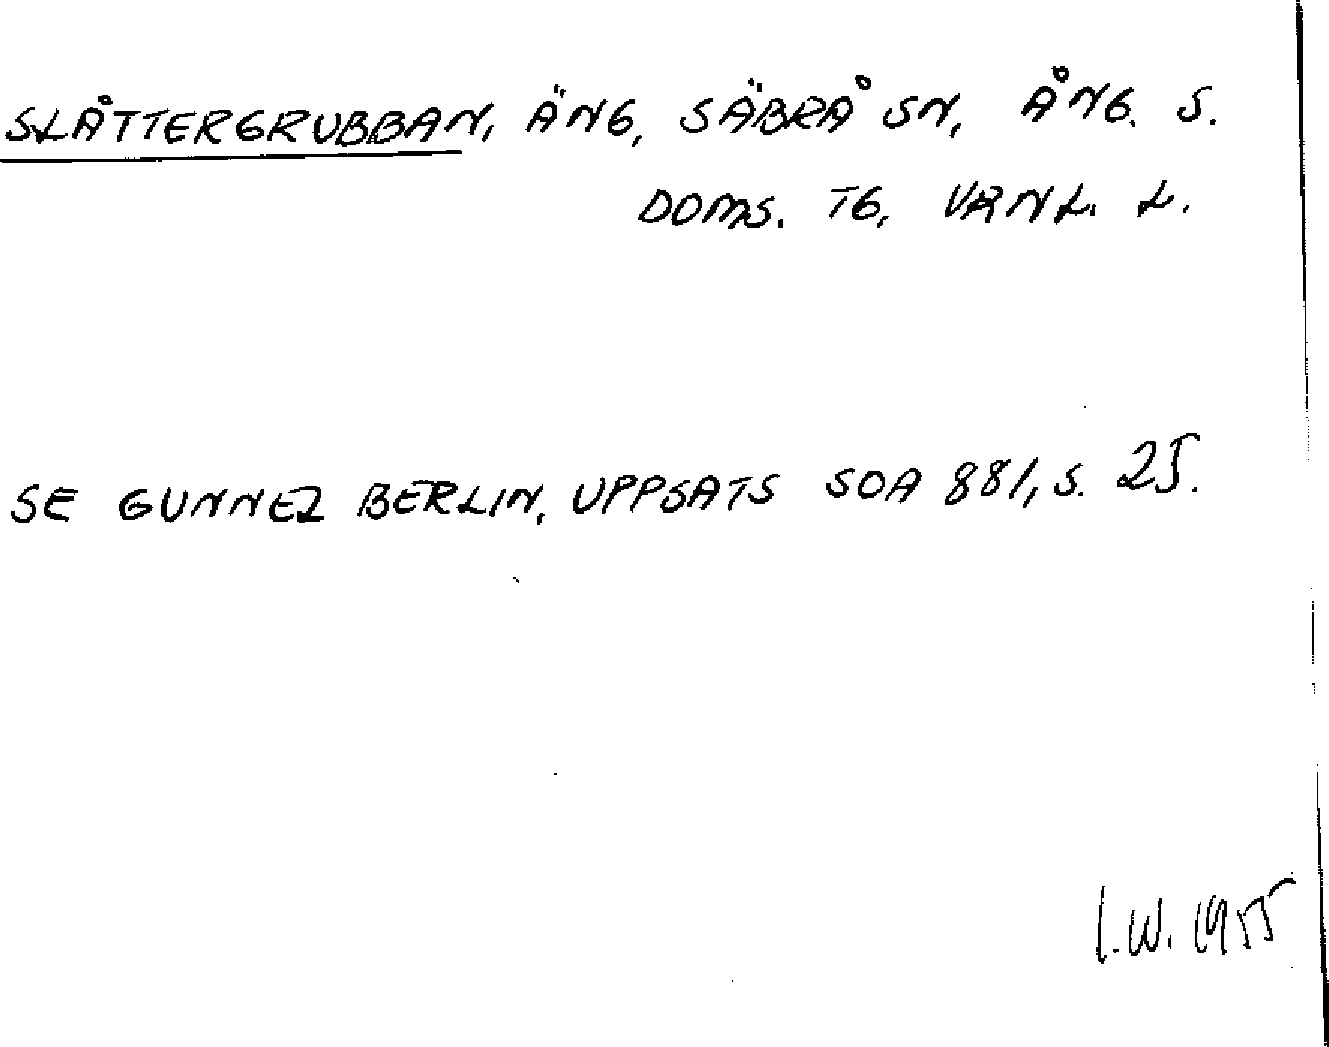 SLÅTTERGRUBBAN, ÄNG, SÄBRÅ SN, ÅNG. S.
DOMS. TG, VRNL. L.
SE GUNNEL BERLIN, UPPSATS SOA 881, S. 25.
I.W. 1955